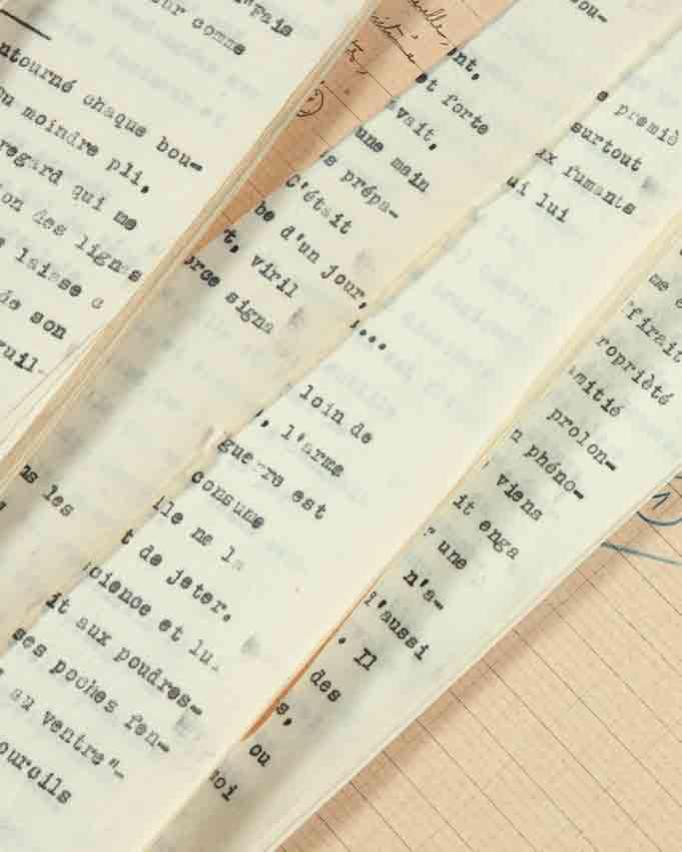 ur comme
ntourné chaque bou-
u moindre pli,
regard qui me
on des lignes
laisse
de son
uil-
nt,
et forte
vait,
une main
s prépa-
C'était
be d'un jour,
t, viril
orce signa
s les
ou-
premiè
surtout
x fumants
ui lui
...
loin de
, l'arme
guerre est
consume
ile ne la
t de jeter.
cience et lui
it aux poudres-
ses poches fen-
au ventre"-
ourcils
me
ffirait
ropriété
mitié
prolon-
n phéno-
viens
it enga
une
n'a-
l'aussi
. Il
des
s,
ou
oi